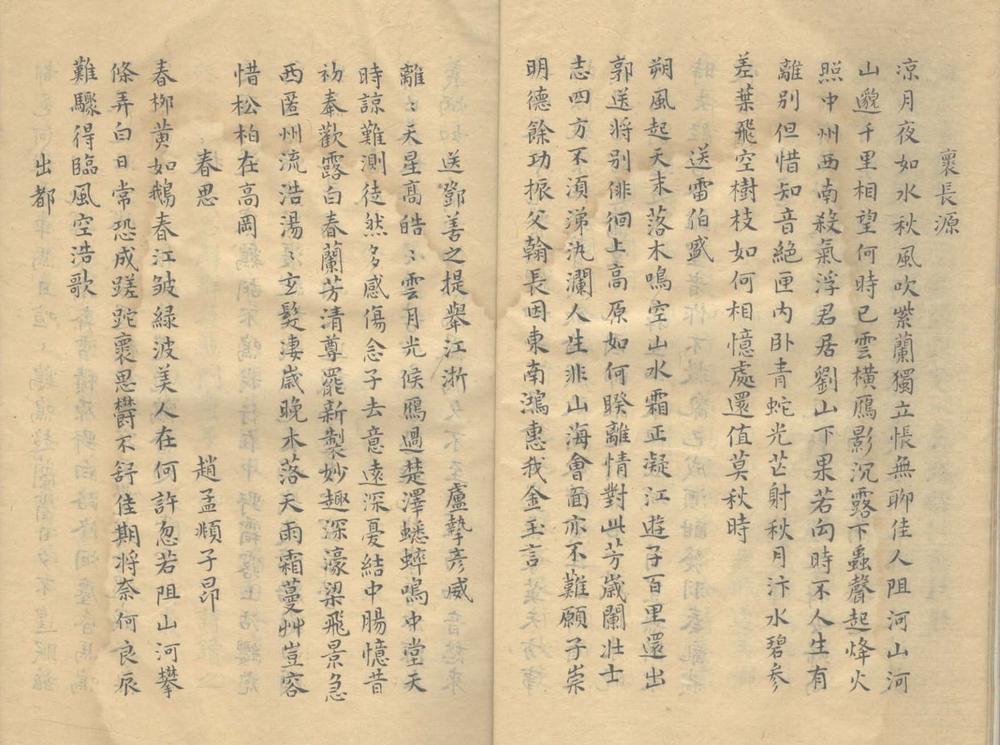 褱長源
涼月夜如水秋風吹紫蘭獨立悵無聊佳人阻河山河
山邈千里相望何時已雲橫鴈影沉露下蟲聲起烽火
照中州西南殺氣浮君居劉山下果若向時不人生有
離別但惜知音絕匣內卧青蛇光芒射秋月汴水碧参
差葉飛空樹枝如何相憶處還值莫秋時
送雷伯盛
朔風起天末落木鳴空山水霜正凝江遊子百里還出
郭送將别徘徊上高原如何睽離情對此芳嵗闌壯士
志四方不湏涕汍瀾人生非山海會面亦不難願子崇
明德餘功振父翰長因東南鴻惠我金玉言
送鄧善之提舉江浙 盧摯彦威
離〻天星高皓〻雲月光候鴈過楚澤蟋蟀鳴中堂天
時諒難測徒然多感傷念子去意遠深憂結中腸憶昔
初奉歡露白春蘭芳清尊罷新製妙趣深濠梁飛景急
西匿州流浩湯〻玄髮淒嵗晚木落天雨霜蔓艸豈容
惜松柏在高岡
春思 趙孟頫子昂
春柳黄如鵝春江皱緑波美人在何許忽若阻山河攀
條弄白日常恐成蹉跎褱思欝不舒佳期將奈何良辰
難驟得臨風空浩歌
出都